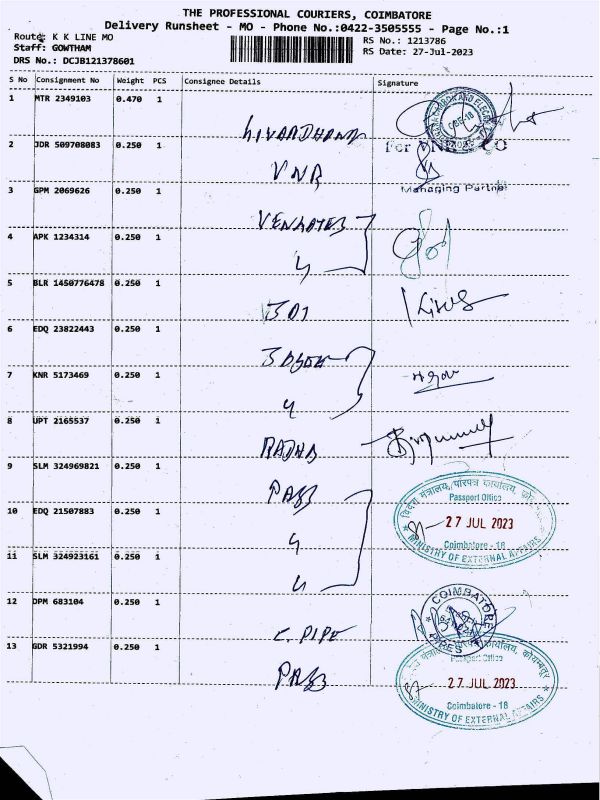 THE PROFESSIONAL COURIERS, COIMBATORE
Delivery Runsheet - MO - Phone No.:0422-3505555 - Page No.:1
Route: K K LINE MO
Staff: GOWTHAM
DRS No.: DCJB121378601
RS No.: 1213786
RS Date: 27-Jul-2023
S No Consignment No Weight PCS Consignee Details Signature
1 MTR 2349103 0.470 1
2 JDR 509708083 0.250 1
For VN CO
VNR
3 GPM 2069626 0.250 1
Managing Partner
4 APK 1234314 0.250 1
5 BLR 1450776478 0.250 1
6 EDQ 23822443 0.250 1
7 KNR 5173469 0.250 1
8 UPT 2165537 0.250 1
RADHA
9 SLM 324969821 0.250 1
PASS
विदेश मंत्रालय, पारपत्र कार्यालय,
Passport Office
10 EDQ 21507883 0.250 1
27 JUL 2023
Coimbatore - 18
MINISTRY OF EXTERNAL AFFAIRS
11 SLM 324923161 0.250 1
12 DPM 683104 0.250 1
COIMBATORE
C. PIPE
13 GDR 5321994 0.250 1
Passport Office
PASS
27 JUL 2023
Coimbatore - 18
MINISTRY OF EXTERNAL AFFAIRS